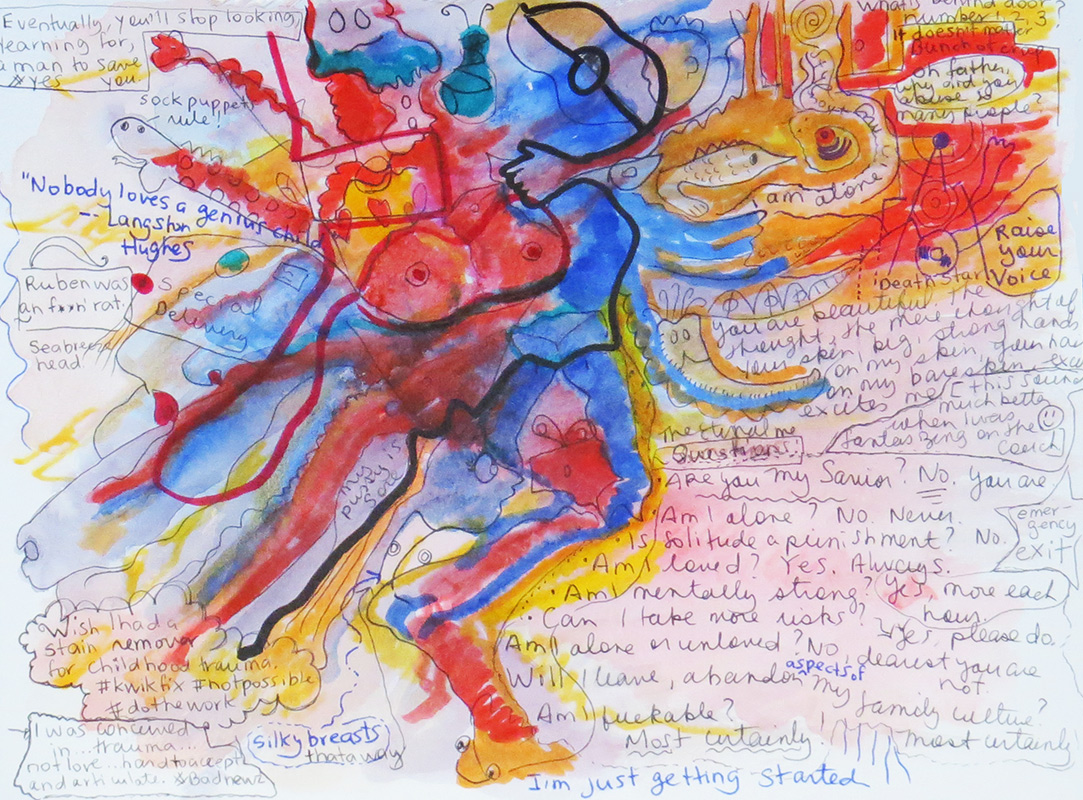 Eventually, you'll stop looking,
yearning for,
a man to save
yes you
sock puppets
rule!!
"Nobody loves a genius child"
-- Langston
Hughes
Ruben was
an f**n rat.
Seabreeze
head.
Special
Delivery
what's behind door
number 1, 2, 3
it doesn't matter
Bunch of crap
oh father,
why did you
abuse so
many people?
i am alone
Raise
your
Voice
Death Star
You are beautiful the
thought, the mere thought of
your skin, big, strong hands
on my skin, your hands
on my bare skin
excites me [this sound
much better
when i was
fantasizing on the
couch
me
Question:
Are you my Savior? No. You are.
Am I alone? No. Never.
Is solitude a punishment? No.
Am I loved? Yes. Always.
Am I mentally strong? Yes, more each
hour.
Can I take more risks? Yes, please do.
Am I alone or unloved? No, dearest you are
not.
Will I leave, abandon aspects of my family culture?
most certainly
Am I fuckable?
Most certainly.
emer-
gency
exit
my
pussy is
Wish I had a
stain remover
for childhood trauma.
#kwikfix #notpossible
#dothework
I was conceived
in...trauma...
not love...hard to accept
and articulate. #Badnewz
silky breasts
thataway
I'm just getting started